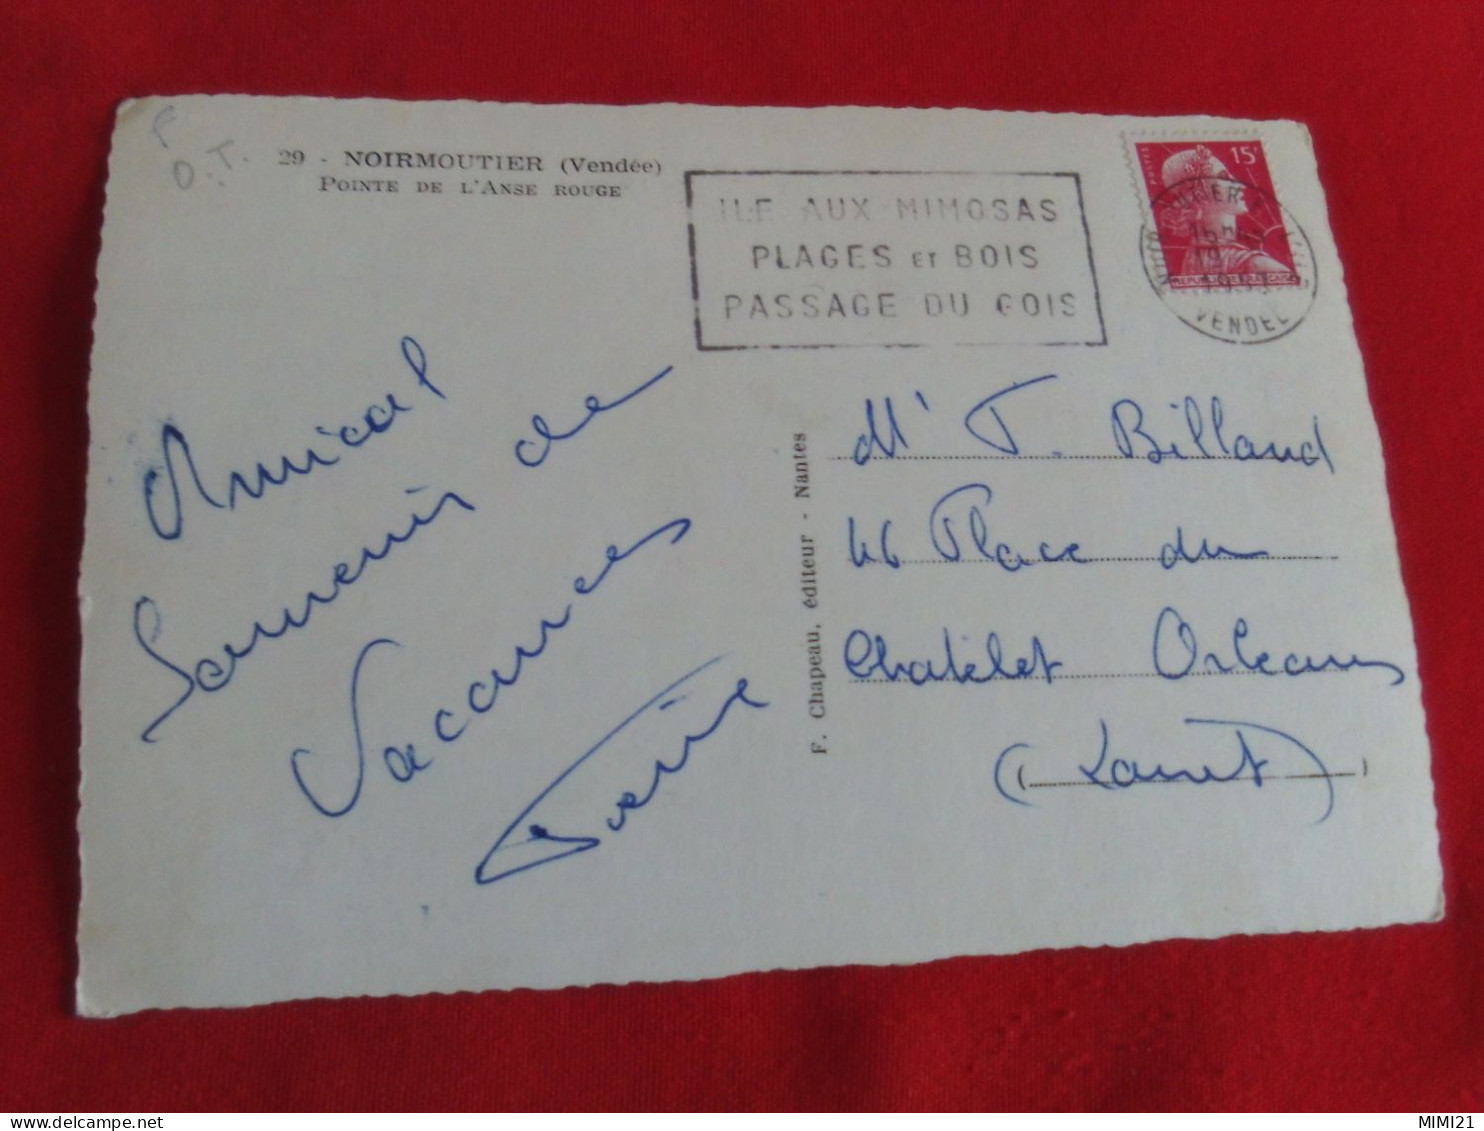 F
O.T.
29 - NOIRMOUTIER (Vendée)
POINTE DE L'ANSE ROUGE
ILE AUX MIMOSAS
PLAGES ET BOIS
PASSAGE DU GOIS
POSTES
15F
REPUBLIQUE FRANÇAISE
15H
VENDEE
Amical
Souvenir de
Vacances
F. Chapeau, éditeur - Nantes
Mr T. Billaud
46 Place du
Chatelet Orleans
(Loiret)
MIMI21